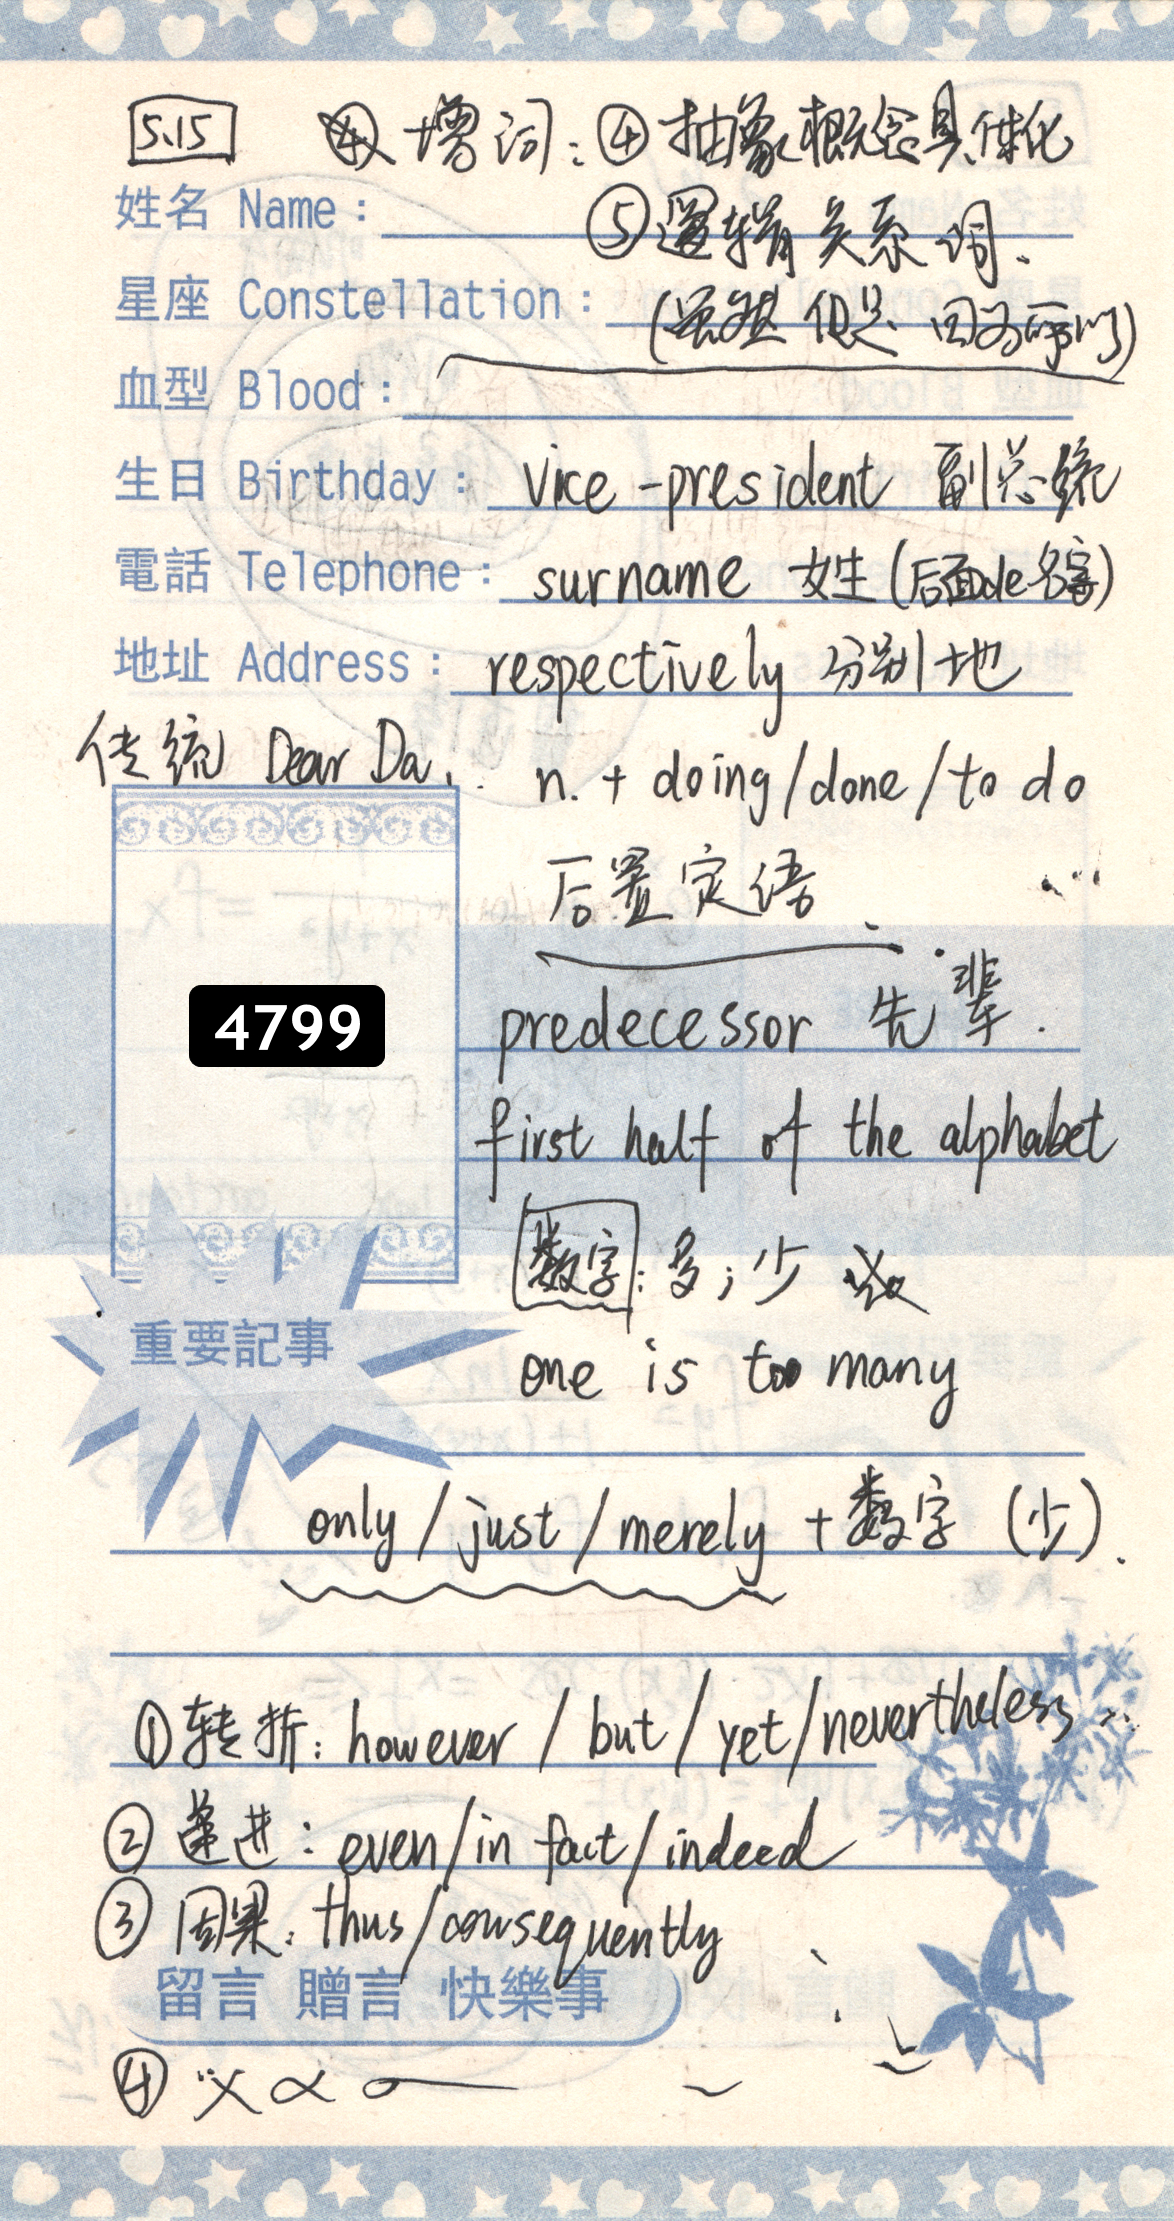 5.15 增词：④抽象概念具体化
姓名 Name：
⑤逻辑关系词.
星座 Constellation：
(虽然 但是 因为所以)
血型 Blood：
生日 Birthday： vice-president 副总统
電話 Telephone： surname 姓(后面de名字)
地址 Address： respectively 分别地
传统 Dear Da.
n. + doing/done/to do
后置定语
4799
predecessor 先辈.
first half of the alphabet
数字：多；少
重要記事
one is too many
only/just/merely +数字 (少).
①转折：however/but/yet/nevertheless
②递进：even/in fact/indeed
③因果：thus/consequently
留言 贈言 快樂事
④